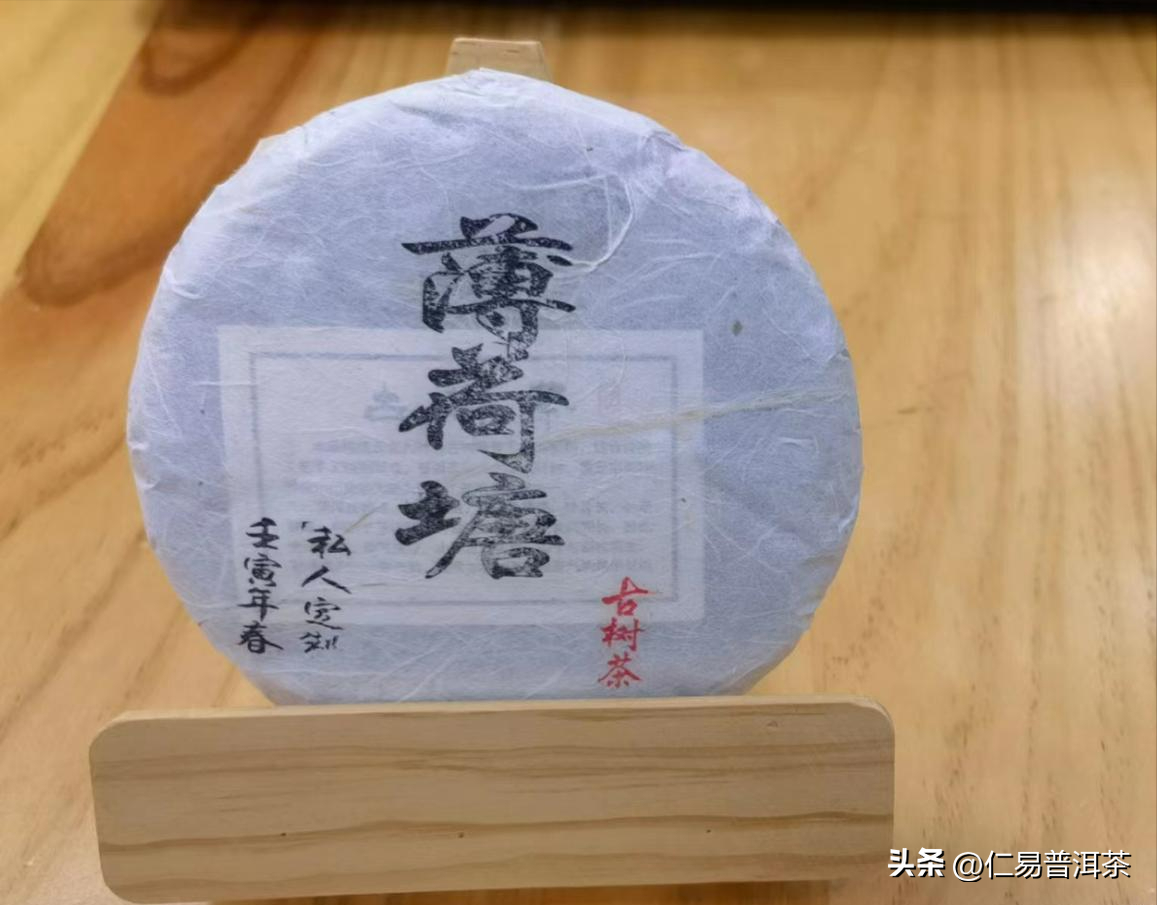 薄荷塘
古树茶
私人定制
壬寅年春
头条 @仁易普洱茶